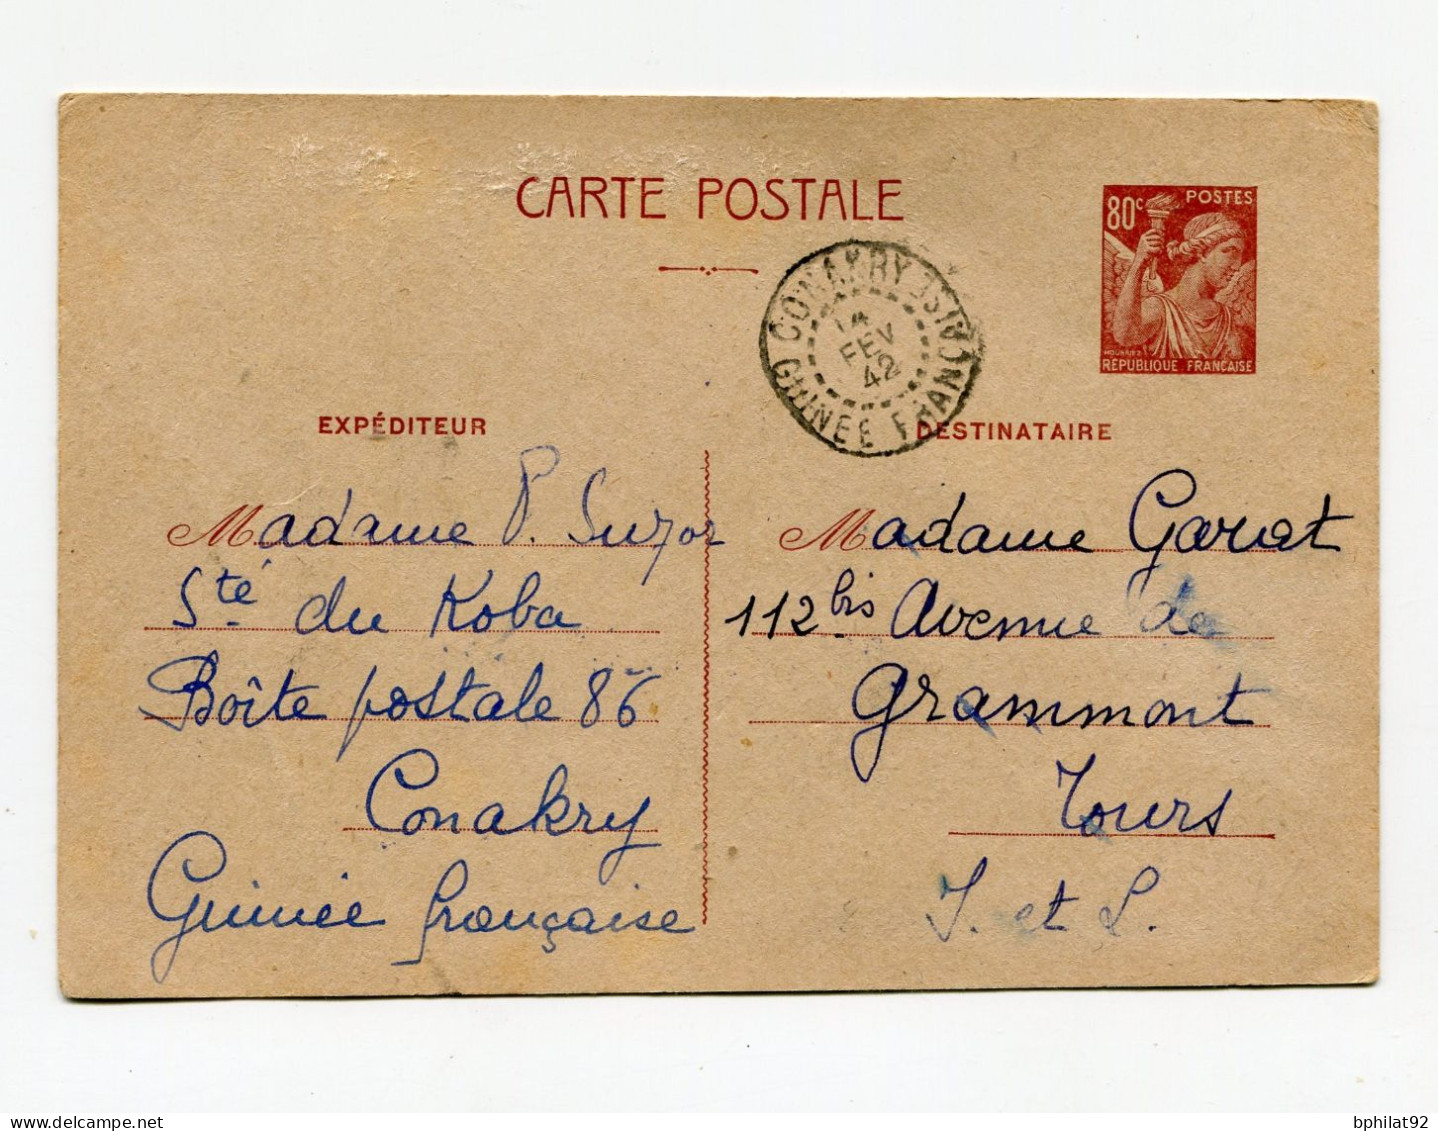 CARTE POSTALE
80c POSTES
RÉPUBLIQUE FRANÇAISE
CONAKRY
14
FEV
42
GUINÉE FRANÇAISE
EXPÉDITEUR
Madame P. Suzor
Sté du Koba
Boîte postale 86
Conakry
Guinée française
DESTINATAIRE
Madame Garat
112 bis Avenue de
Grammont
Tours
I. et L.
bphilat92